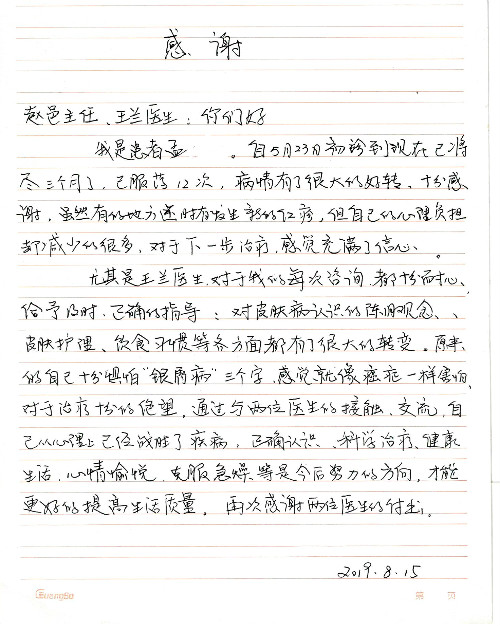 感谢
赵邑主任、王兰医生：你们好
我是患者孟 。自5月23日初诊到现在已将
尽三个月了，已服药12次，病情有了很大的好转、十分感
谢，虽然有的地方还时有发生新的红疹，但自己的心理负担
却减少的很多，对于下一步治疗，感觉充满了信心。
尤其是王兰医生，对于我的每次咨询都十分耐心、
给予及时、正确的指导；对皮肤病认识的陈旧观念、、
皮肤护理、饮食习惯等各方面都有了很大的转变。原来
的自己十分惧怕“银屑病”三个字，感觉就像癌症一样害怕，
对于治疗十分的绝望。通过与两位医生的接触、交流，自
己从心理上已经战胜了疾病，正确认识、科学治疗、健康
生活，心情愉悦，克服急燥等是今后努力的方向，才能
更好的提高生活质量。再次感谢两位医生的付出。
2019.8.15
Guangbo
第 页